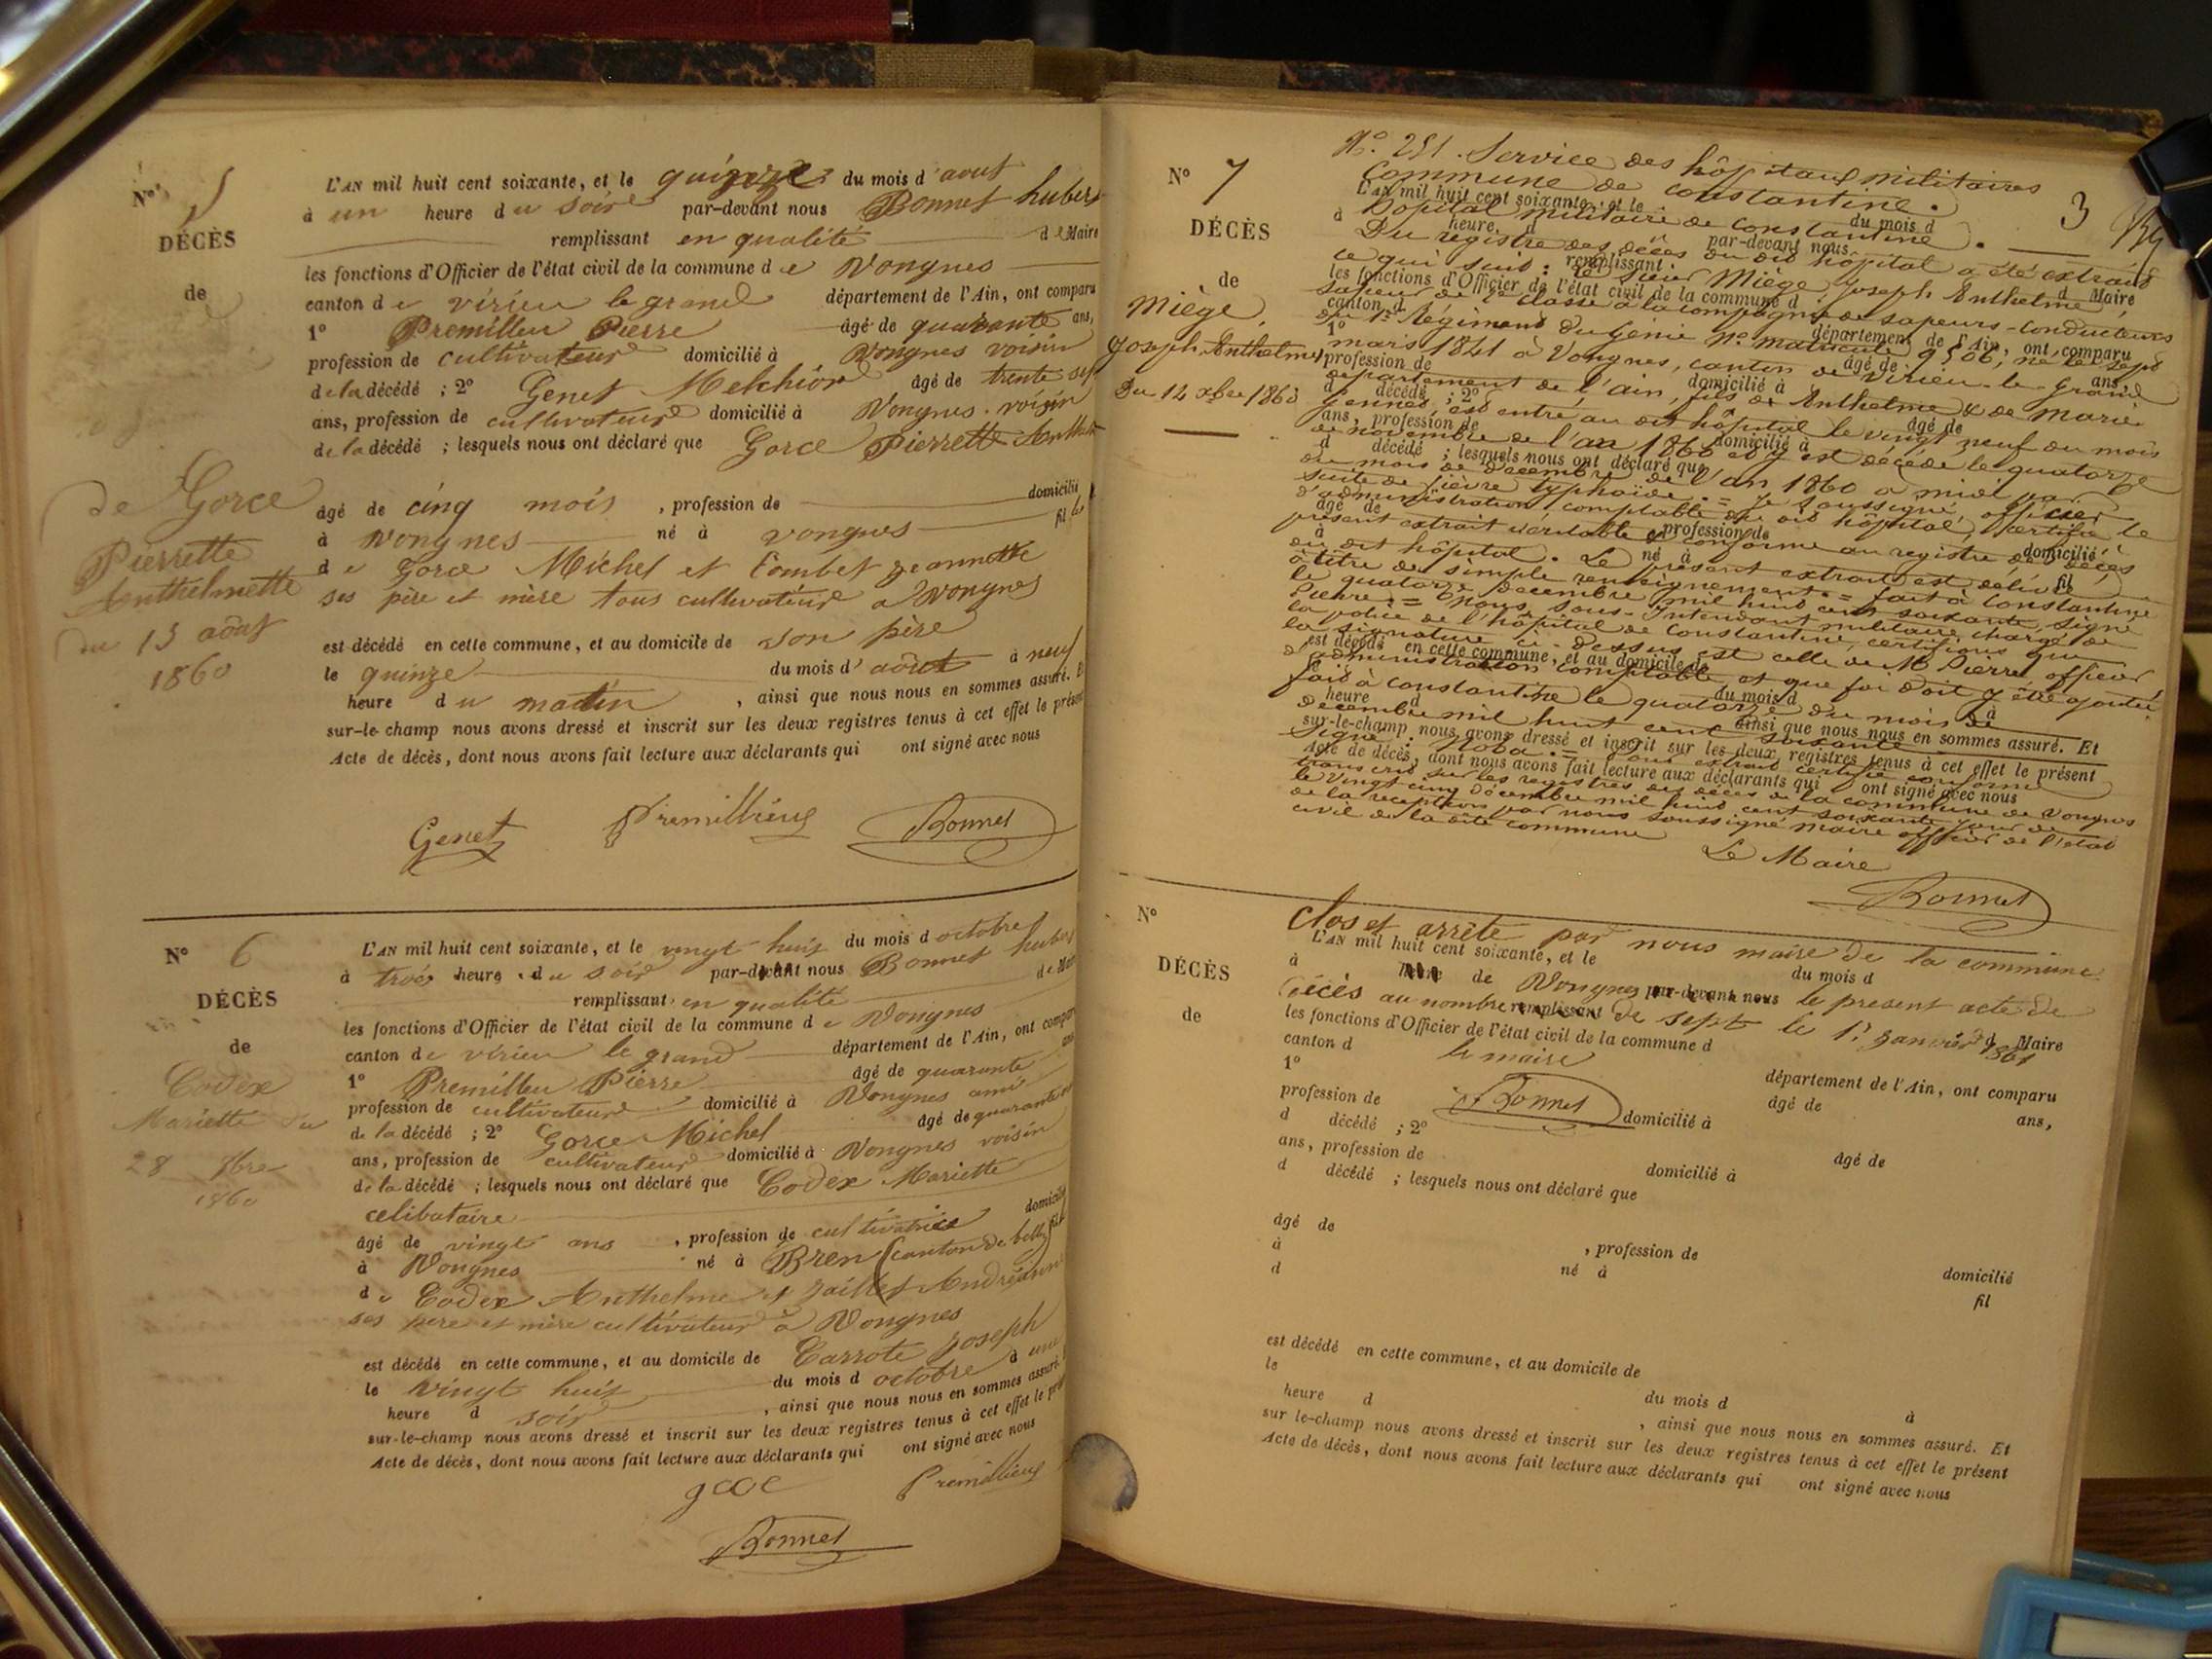 N° 5
DÉCÈS
de
de Gorce
Pierrette
Anthelmette
du 15 août
1860
L'AN mil huit cent soixante, et le quinze du mois d'aout
à un heure du soir par-devant nous Bonnet hubert
remplissant en qualité de Maire
les fonctions d'Officier de l'état civil de la commune de Vongnes
canton de virieu le grand département de l'Ain, ont comparu
1° Premillieu Pierre âgé de quarante ans,
profession de cultivateur domicilié à Vongnes voisin
de la décédé ; 2° Genet Melchior âgé de trente sept
ans, profession de cultivateur domicilié à Vongnes voisin
de la décédé ; lesquels nous ont déclaré que Gorce Pierrette Anthel
âgé de cinq mois , profession de domicilié
à Vongnes né à vongnes fille
de Gorce Michel et Combet jeannette
ses père et mère tous cultivateur a Vongnes
est décédé en cette commune, et au domicile de son père
le quinze du mois d'août à neuf
heure du matin , ainsi que nous nous en sommes assuré. Et
sur-le-champ nous avons dressé et inscrit sur les deux registres tenus à cet effet le présent
Acte de décès, dont nous avons fait lecture aux déclarants qui ont signé avec nous
Genet Premillieux Bonnet
N° 6
DÉCÈS
de
Codex
Mariette du
28 8bre
1860
L'AN mil huit cent soixante, et le vingt huit du mois d octobre
à trois heure du soir par-devant nous Bonnet hubert
remplissant en qualité de Maire
les fonctions d'Officier de l'état civil de la commune de Vongnes
canton de virieu le grand département de l'Ain, ont comparu
1° Premillieu Pierre âgé de quarante ans
profession de cultivateur domicilié à Vongnes ami
de la décédé ; 2° Gorce Michel âgé de quarante
ans, profession de cultivateur domicilié à Vongnes voisin
de la décédé ; lesquels nous ont déclaré que Codex Mariette
celibataire
âgé de vingt ans , profession de cultivatrice domicilié
à Vongnes né à Bren (canton de belley) fille
de Codex Anthelme et Jaillet Andréanne
ses père et mère cultivateur à Vongnes
est décédé en cette commune, et au domicile de Carrote Joseph
le vingt huit du mois d octobre à une
heure d soir , ainsi que nous nous en sommes assuré.
sur-le-champ nous avons dressé et inscrit sur les deux registres tenus à cet effet le présent
Acte de décès, dont nous avons fait lecture aux déclarants qui ont signé avec nous
Premillieux
Bonnet
N° 7
DÉCÈS
de
Miège,
Joseph Anthelme
Du 14 xbre 1860
3
N°. 251. Service des hôpitaux militaires
Commune de constantine.
L'AN mil huit cent soixante, et le du mois d
hopital militaire de constantine.
à heure d par-devant nous
Du registre des décès du dit hôpital a été extrait
remplissant d Maire
ce qui suit : le sieur Miège, Joseph Anthelme,
les fonctions d'Officier de l'état civil de la commune d
sapeur de 2e classe à la compagnie de sapeurs-conducteurs
canton d département de l'Ain, ont comparu
du 1er Régiment du Genie n° matricule 9506, né le sept
1° âgé de ans,
mars 1841 à Vongnes, canton de Virieu-le-Grand
profession de domicilié à
département de l'ain, fils de Anthelme & de Marie
d décédé ; 2° âgé de
Jennet, est entré au dit hôpital le vingt neuf du mois
ans, profession de domicilié à
de novembre de l'an 1860 et y est décédé le quatorze
d décédé ; lesquels nous ont déclaré que
du mois de décembre de l'an 1860 a midi par
suite de fièvre typhoïde. = Je soussigné, officier
d'administration comptable du dit hôpital, certifie le
âgé de profession de domicilié
présent extrait veritable & conforme au registre des décès
à né à fil
du dit hôpital. Le présent extrait est délivré
d
à titre de simple renseignement. = fait à Constantine
le quatorze décembre mil huit cent soixante, signé
Pierre. = Nous, sous-Intendant militaire chargé de
la police de l'hôpital de Constantine, certifions que
la signature ci-dessus est celle de Mr Pierre, officier
est décédé en cette commune, et au domicile de
d'administration comptable et que foi doit y être ajoutée
fait à constantine le quatorze du mois de
heure d du mois d à
décembre mil huit cent soixante
ainsi que nous nous en sommes assuré. Et
signé: = Pour extrait certifié conforme
sur-le-champ nous avons dressé et inscrit sur les deux registres tenus à cet effet le présent
transcrit sur les registres des décès de la commune de Vongnes
Acte de décès, dont nous avons fait lecture aux déclarants qui ont signé avec nous
le vingt cinq décembre mil huit cent soixante jour de
de la reception par nous soussigné maire officier de l'etat
civil de la dite commune
Le Maire
Bonnet
N°
DÉCÈS
de
Clos et arrête par nous maire de la commune
L'AN mil huit cent soixante, et le du mois d
à de Vongnes par-devant nous le present acte de
décès au nombre remplissant de sept le 1er janvier 1861 d Maire
les fonctions d'Officier de l'état civil de la commune d
canton d le maire département de l'Ain, ont comparu
1° âgé de ans,
profession de Bonnet domicilié à
d décédé ; 2° âgé de
ans, profession de domicilié à
d décédé ; lesquels nous ont déclaré que
âgé de , profession de domicilié
à né à fil
d
est décédé en cette commune, et au domicile de
le du mois d à
heure d , ainsi que nous nous en sommes assuré. Et
sur le-champ nous avons dressé et inscrit sur les deux registres tenus à cet effet le présent
Acte de décès, dont nous avons fait lecture aux déclarants qui ont signé avec nous